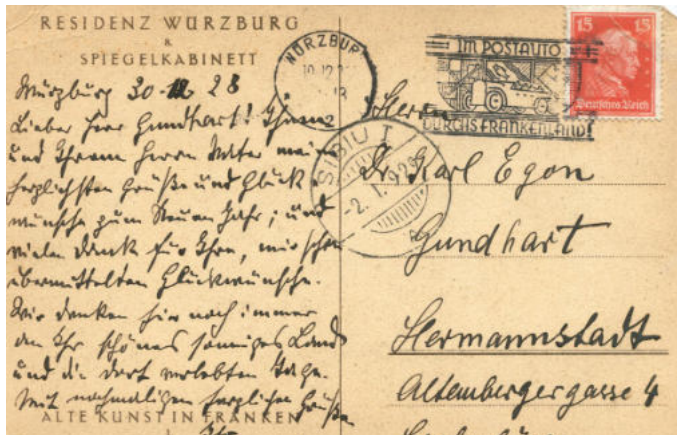 RESIDENZ WÜRZBURG
&
SPIEGELKABINETT
Würzburg 30-12 28
Lieber Herr Gundhart! Ihnen
und Ihrem Herrn Vater meine
herzlichsten Grüße und Glück-
wünsche zum Neuen Jahr; und
vielen Dank für Ihre, mir schon
übermittelten Glückwünsche.
Wir denken hier noch immer
an Ihr schönes sonniges Land
und die dort verlebten Tage.
Mit nochmaligen herzlichen Grüßen
ALTE KUNST IN FRANKEN
WÜRZBURG
IM POSTAUTO
DURCHS FRANKENLAND!
15 15
Deutsches Reich
SIBIU I
-2. I. 929
Herrn
Dr. Karl Egon
Gundhart
Hermannstadt
Altembergergasse 4